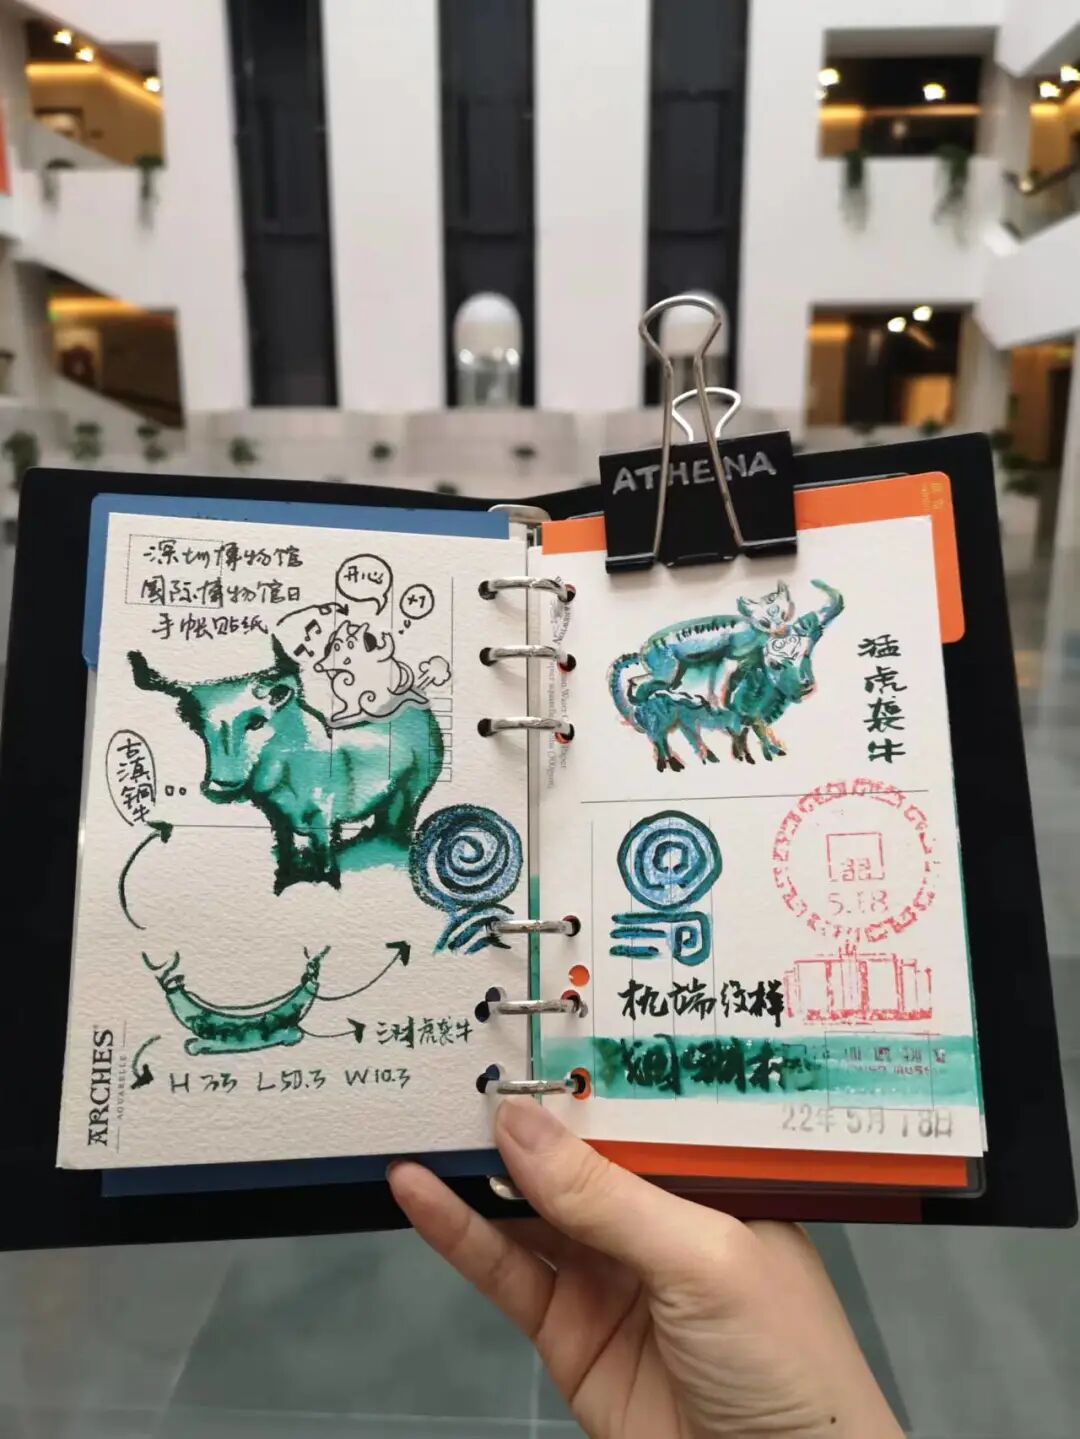 深圳博物馆
国际博物馆日
手帐贴纸
开心
x1
古滇铜牛
虎袭牛
H 33 L50.3 W10.3
ARCHES
AQUARELLE
ATHENA
猛虎袭牛
5.18
杭端纹样
22年 5月 18日